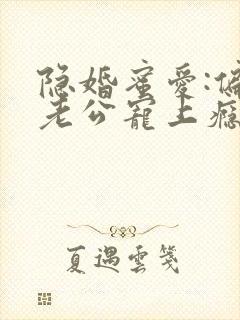 隐婚蜜爱:偏
老公宠上瘾
夏遇雲箋